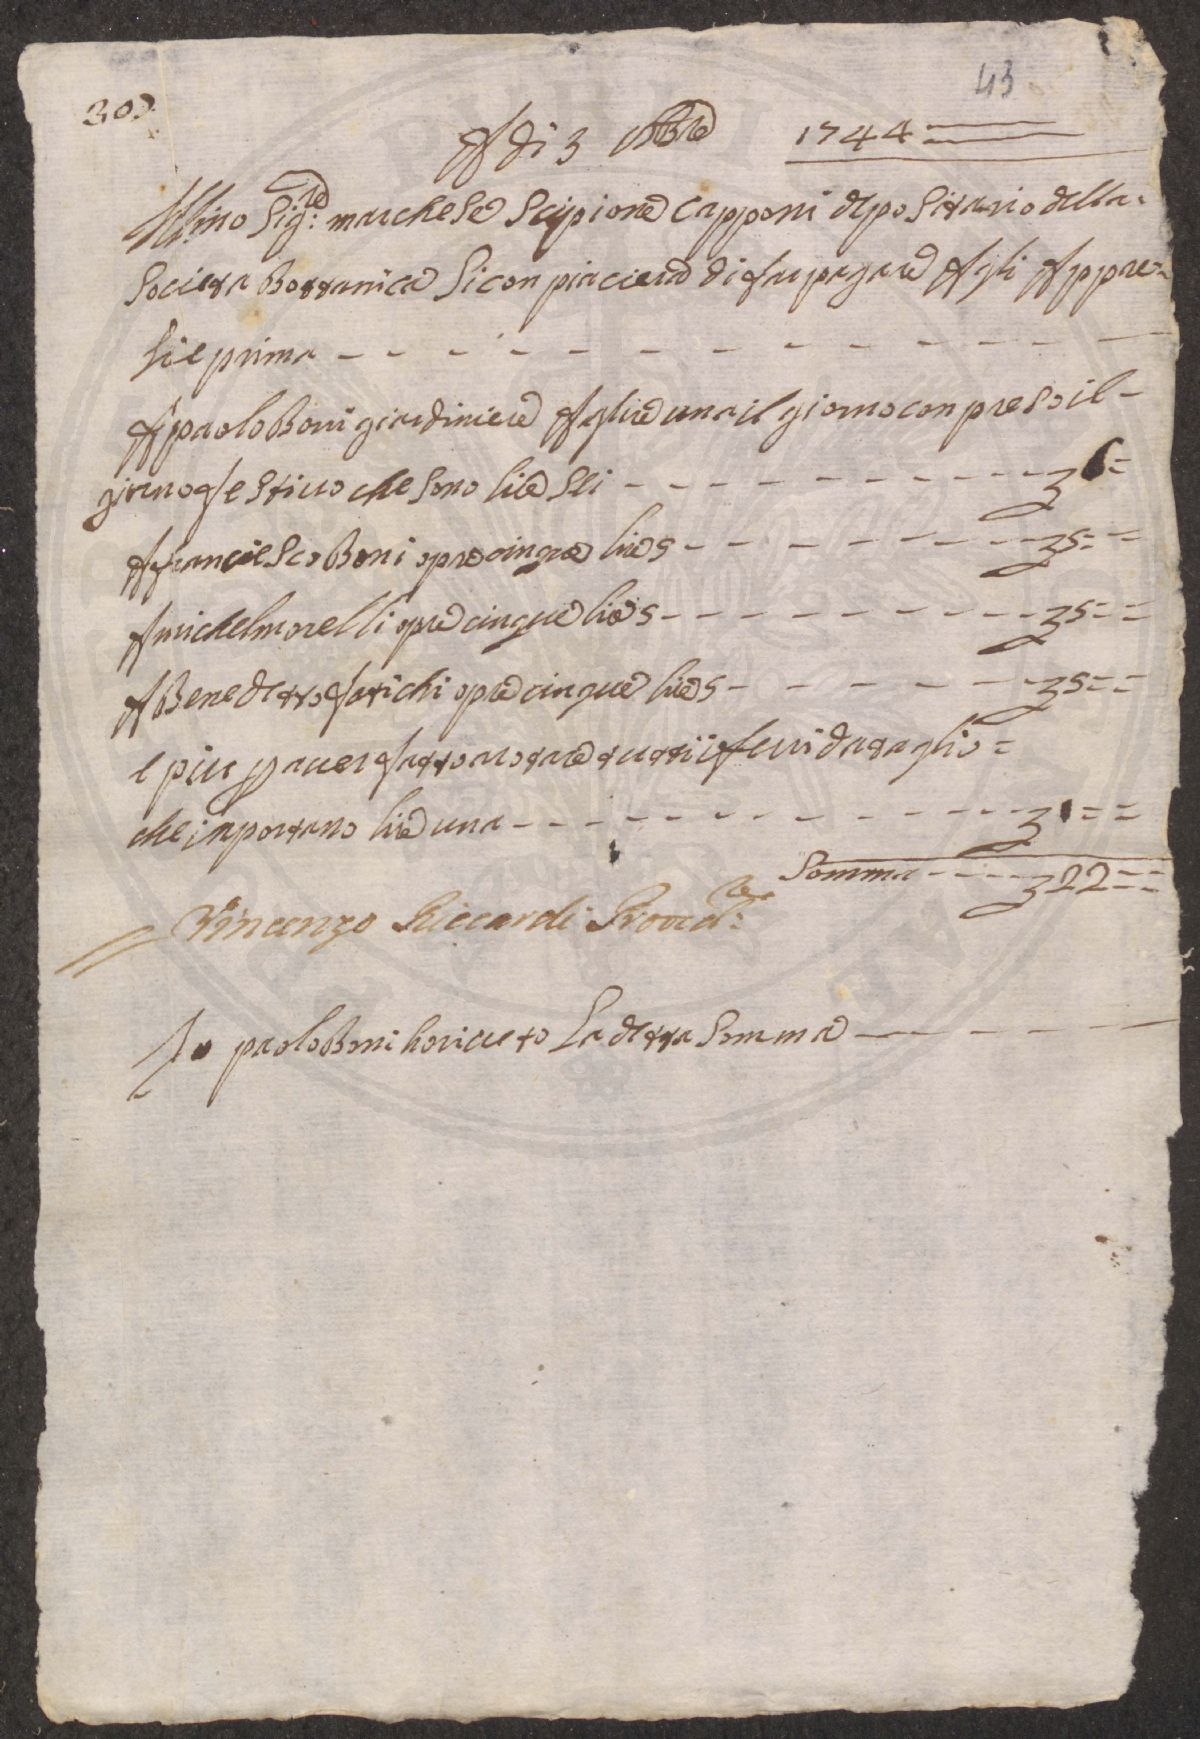 43
30
A di 3 8bre 1744
Illmo Sigre: marchese Scipione Capponi depositario della
Societa Bottanica Si conpiaciera di far pagare A gli Appre-
sie prima
A paolo Boni giardiniere A lire una il giorno conpreso il
giorno festiuo che sono lire sei - 3 6
A franciesco Boni opre cinque lire 5 - 3 5
A michel morelli opre cinque lire 5 - 3 5
A Benedetto fatichi opre cinque lire 5 - 3 5
e piu p auer fatto arotare tutti i feri da taglio
che inportano lire una - 3 1
Somma - 3 22
Vincenzo Riccardi Provedre:
Io paolo Boni ho riceuto La detta Somma